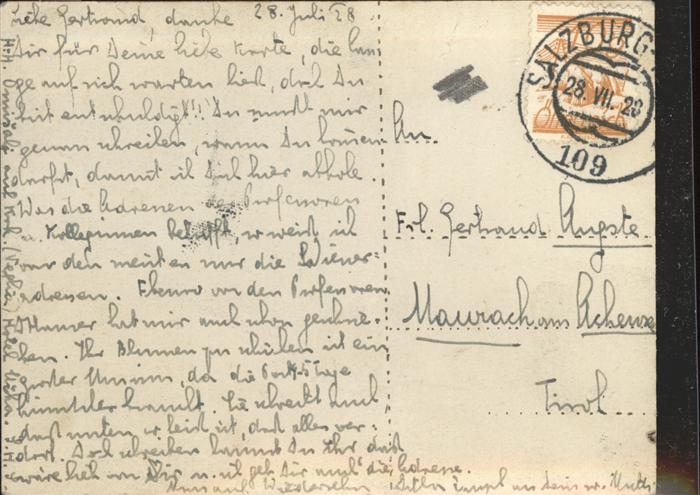 Liebe Gertraud, danke 28. Juli 28
Dir für Deine liebe Karte, die lan
ge auf sich warten ließ, doch Du
bist entschuldigt!! Du mußt mir
genau schreiben, wann Du kommen
darfst, damit ich Dich hier abhole.
Was die Adressen der Professoren
u. Kolleginnen betrifft, so weiß ich
von den meisten nur die Wiener-
adressen. Ebenso von den Professoren
hat mir auch schon geschrie-
ben. Ihr Blumen zu schicken ist ein
guter Unsinn, da die Post 5 Tage
braucht. Sie schreibt auch
daß unten so heiß ist, daß alles ver-
dorrt. Doch schreiben kannst Du Ihr, das
wäre lieb von Dir u. ich geb Dir auch die Adresse.
Auf Wiedersehn
SALZBURG
28. VII. 28
109
An
Frl. Gertraud Angste
Maurach am Achensee
Tirol